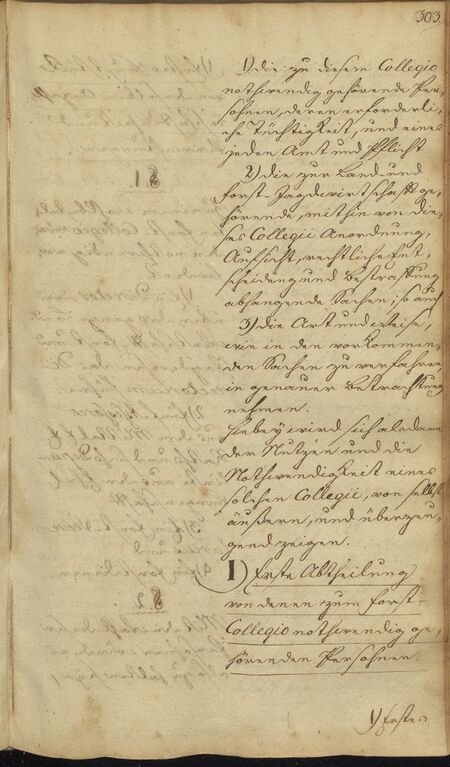 303.
1) die zu diesem Collegio
nothwendig gehörende Per-
sohnen, deren erforderli-
che Tüchtigkeit, und eines
jeden Amt und Pflicht
2) die zur Land- und
Forst-Jagdwirtschafft ge-
hörende, mithin von die-
ses Collegii Anordnung,
Aufsicht, rechtliche Ent-
scheidung und Bestraffung
abhangende Sachen; so auch
3) die Art und Weise,
wie in den vorkommen-
den Sachen zu verfahren
in genauer Betrachtung
nehmen.
Hiebey wird sich alsdann
der Nutzen und die
Nothwendigkeit eines
solchen Collegii, von selbst
äußern, und überzeu-
gend zeigen.
I) Erste Abtheilung
von denen zum Forst-
Collegio nothwendig ge-
hörenden Persohnen.
1) Erste